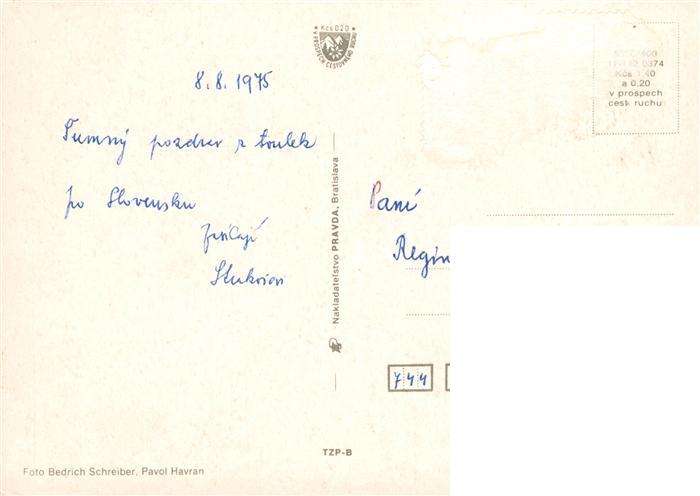 Kčs 0.20
V PROSPECH CESTOVNÉHO RUCHU
8.8.1975
pozdrav z toulek
po Slovensku
zasílají
Nakladateľstvo PRAVDA, Bratislava
Kčs 1,40
a 0.20
v prospech
cest. ruchu
Paní
Regin
744
TZP-B
Foto Bedrich Schreiber, Pavol Havran